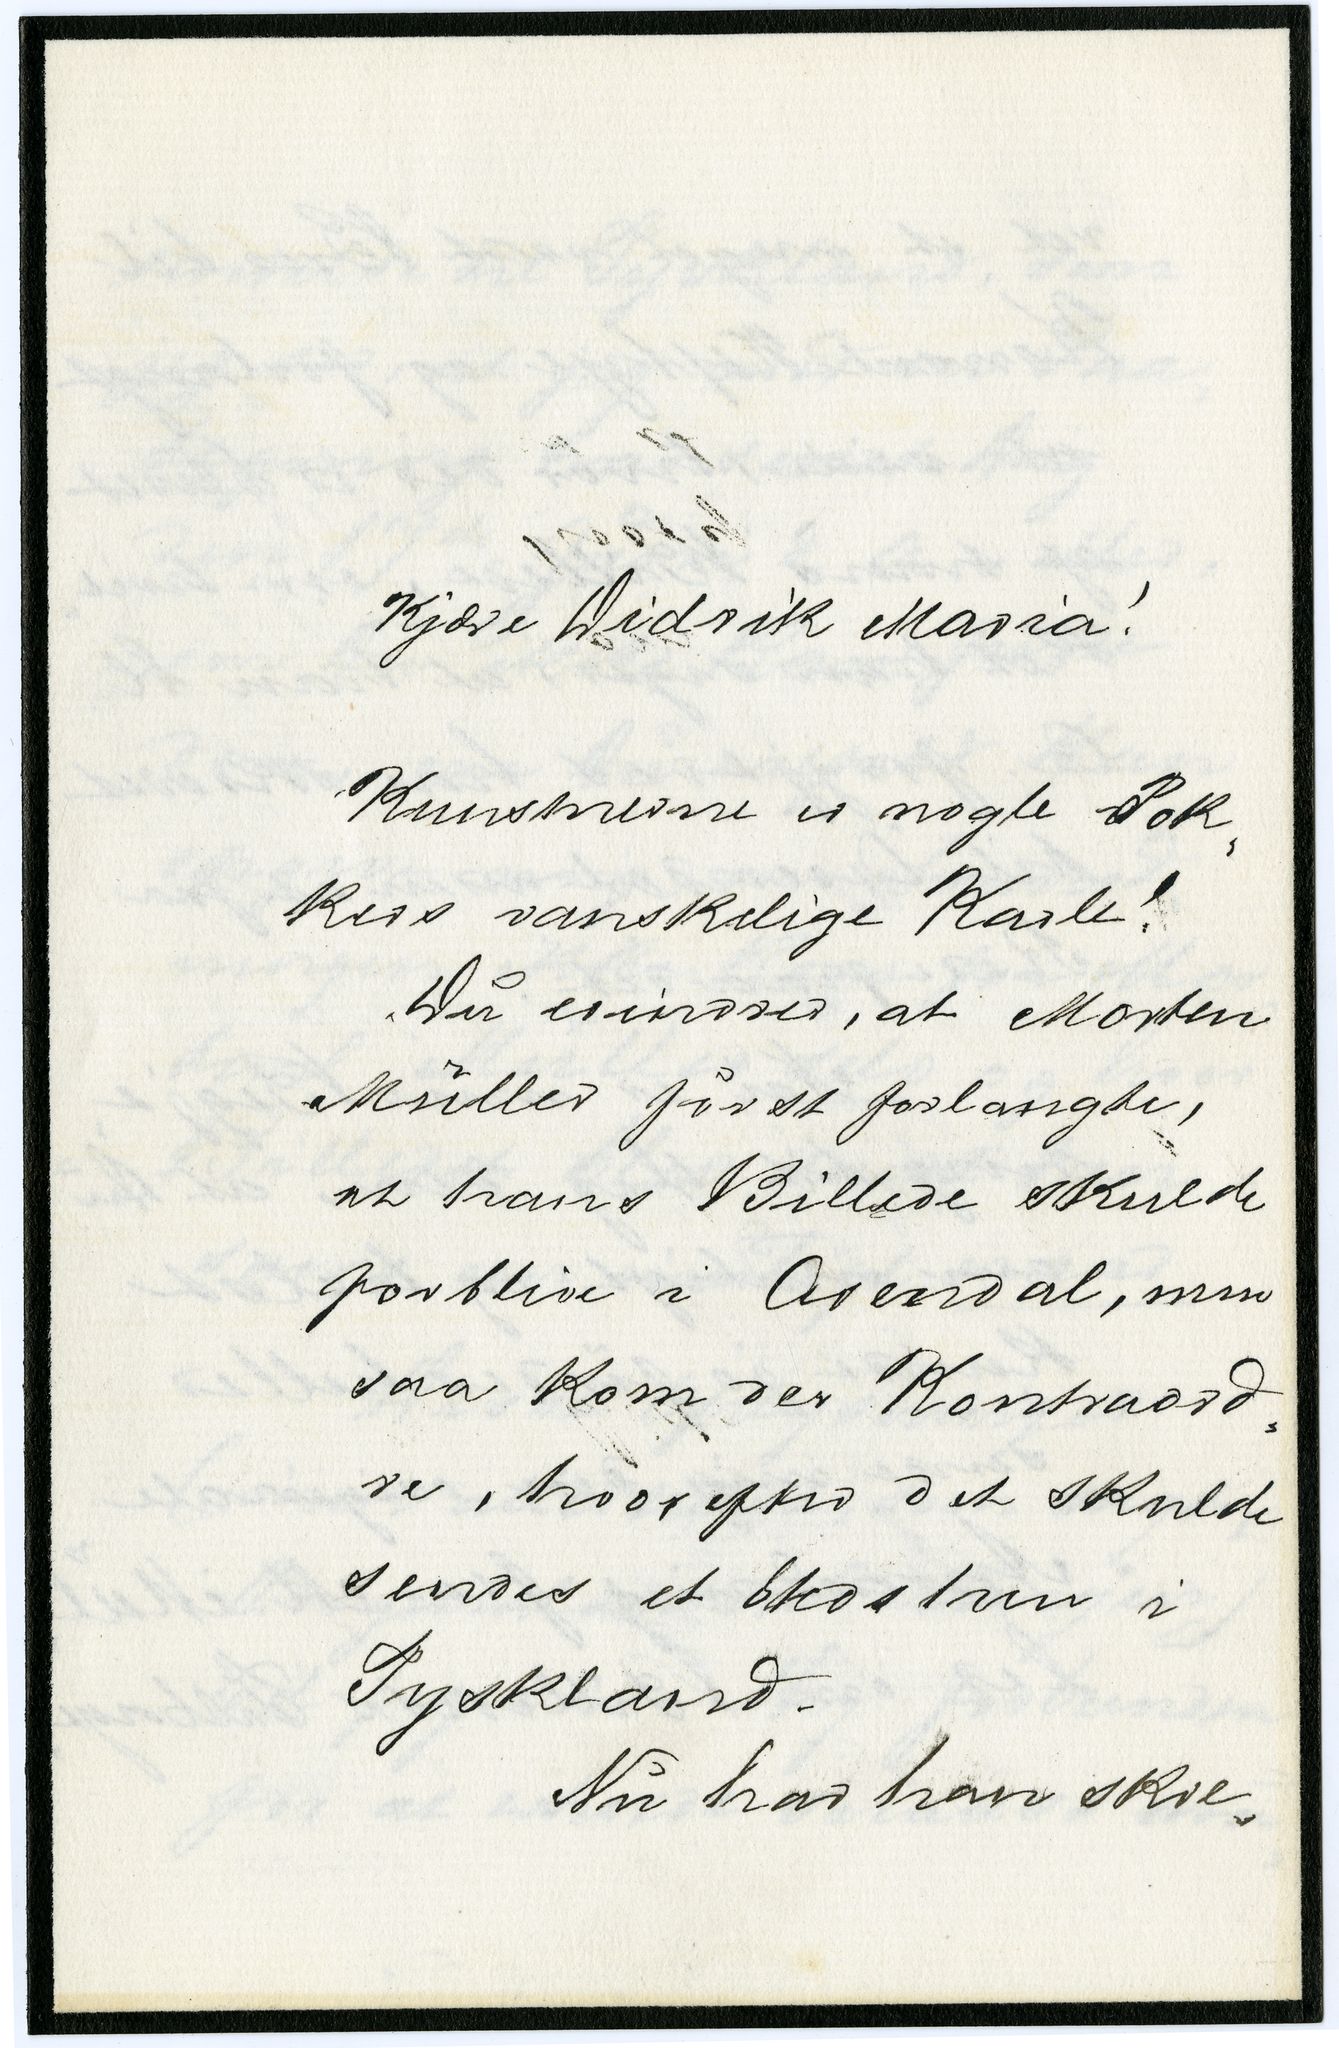 Kjære Didrik Maria!
Kunstnerne er nogle Pok-
kers vanskelige Karle!
Du erindrer, at Morten
Müller först forlangte,
at hans Billede skulde
forblive i Arendal, men
saa kom der Kontraord-
re, hvorefter det skulde
sendes et Sted hen i
Tyskland.
Nu har han skre-